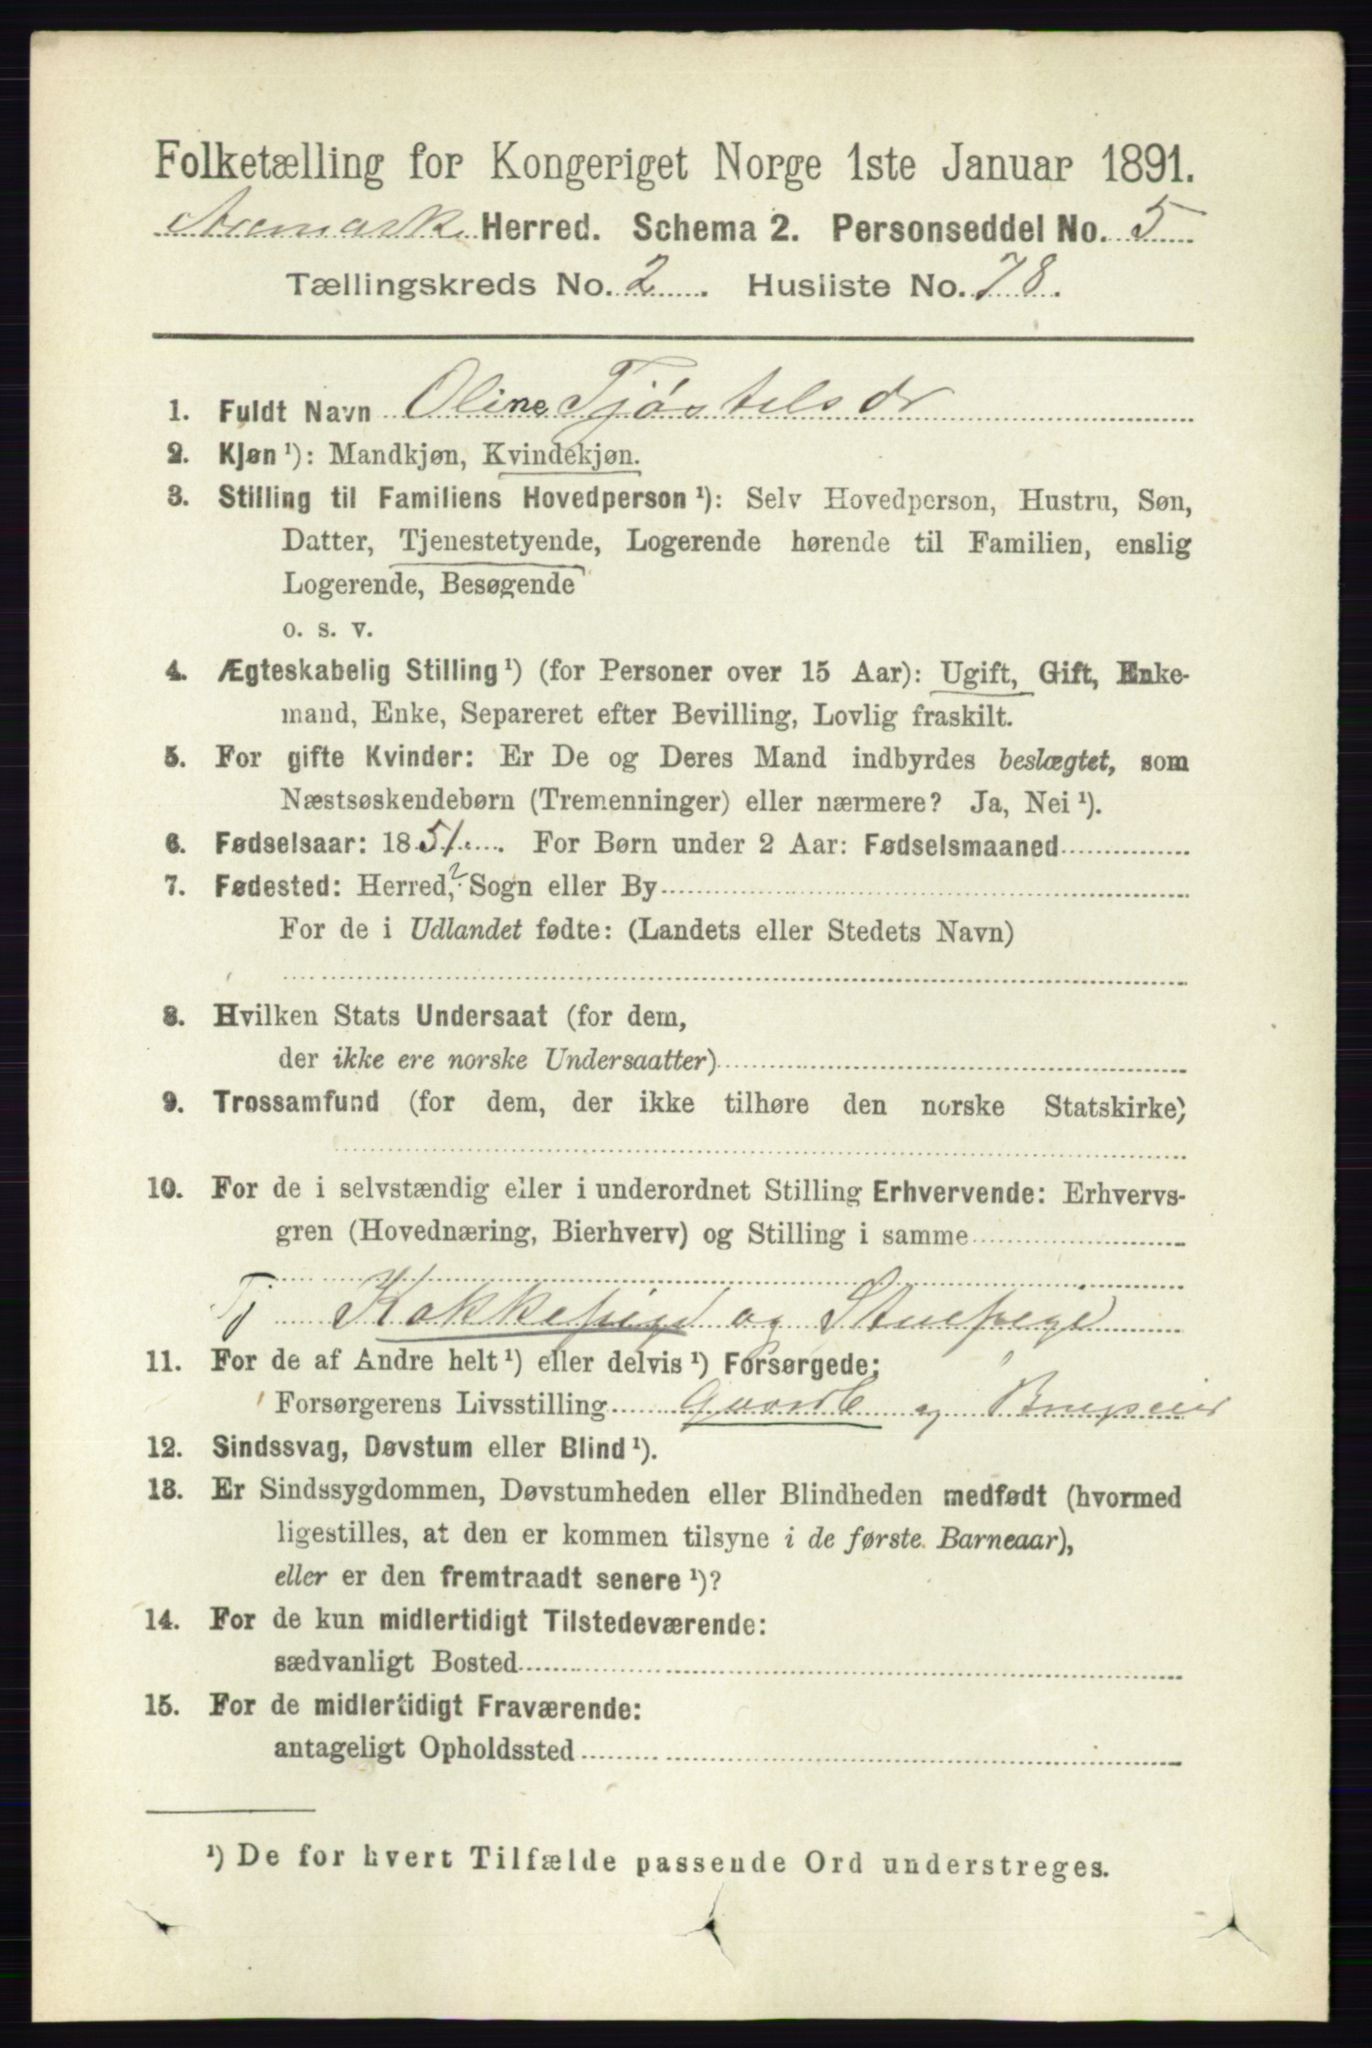 Folketælling for Kongeriget Norge 1ste Januar 1891.
Aremark Herred. Schema 2. Personseddel No. 5
Tællingskreds No. 2. Husliste No. 78.
1. Fuldt Navn Oline Tjøstelsdr
2. Kjøn ¹): Mandkjøn, Kvindekjøn.
3. Stilling til Familiens Hovedperson ¹): Selv Hovedperson, Hustru, Søn,
Datter, Tjenestetyende, Logerende hørende til Familien, enslig
Logerende, Besøgende
o. s. v.
4. Ægteskabelig Stilling ¹) (for Personer over 15 Aar): Ugift, Gift, Enke-
mand, Enke, Separeret efter Bevilling, Lovlig fraskilt.
5. For gifte Kvinder: Er De og Deres Mand indbyrdes beslægtet, som
Næstsøskendebørn (Tremenninger) eller nærmere? Ja, Nei ¹).
6. Fødselsaar: 1851. For Børn under 2 Aar: Fødselsmaaned
7. Fødested: Herred, ² Sogn eller By
For de i Udlandet fødte: (Landets eller Stedets Navn)
8. Hvilken Stats Undersaat (for dem,
der ikke ere norske Undersaatter)
9. Trossamfund (for dem, der ikke tilhøre den norske Statskirke)
10. For de i selvstændig eller i underordnet Stilling Erhvervende: Erhvervs-
gren (Hovednæring, Bierhverv) og Stilling i samme
Tj Kokkepige og Stuepige
11. For de af Andre helt ¹) eller delvis ¹) Forsørgede:
Forsørgerens Livsstilling Gaardb og
12. Sindssvag, Døvstum eller Blind ¹).
13. Er Sindssygdommen, Døvstumheden eller Blindheden medfødt (hvormed
ligestilles, at den er kommen tilsyne i de første Barneaar),
eller er den fremtraadt senere ¹)?
14. For de kun midlertidigt Tilstedeværende:
sædvanligt Bosted
15. For de midlertidigt Fraværende:
antageligt Opholdssted
¹) De for hvert Tilfælde passende Ord understreges.